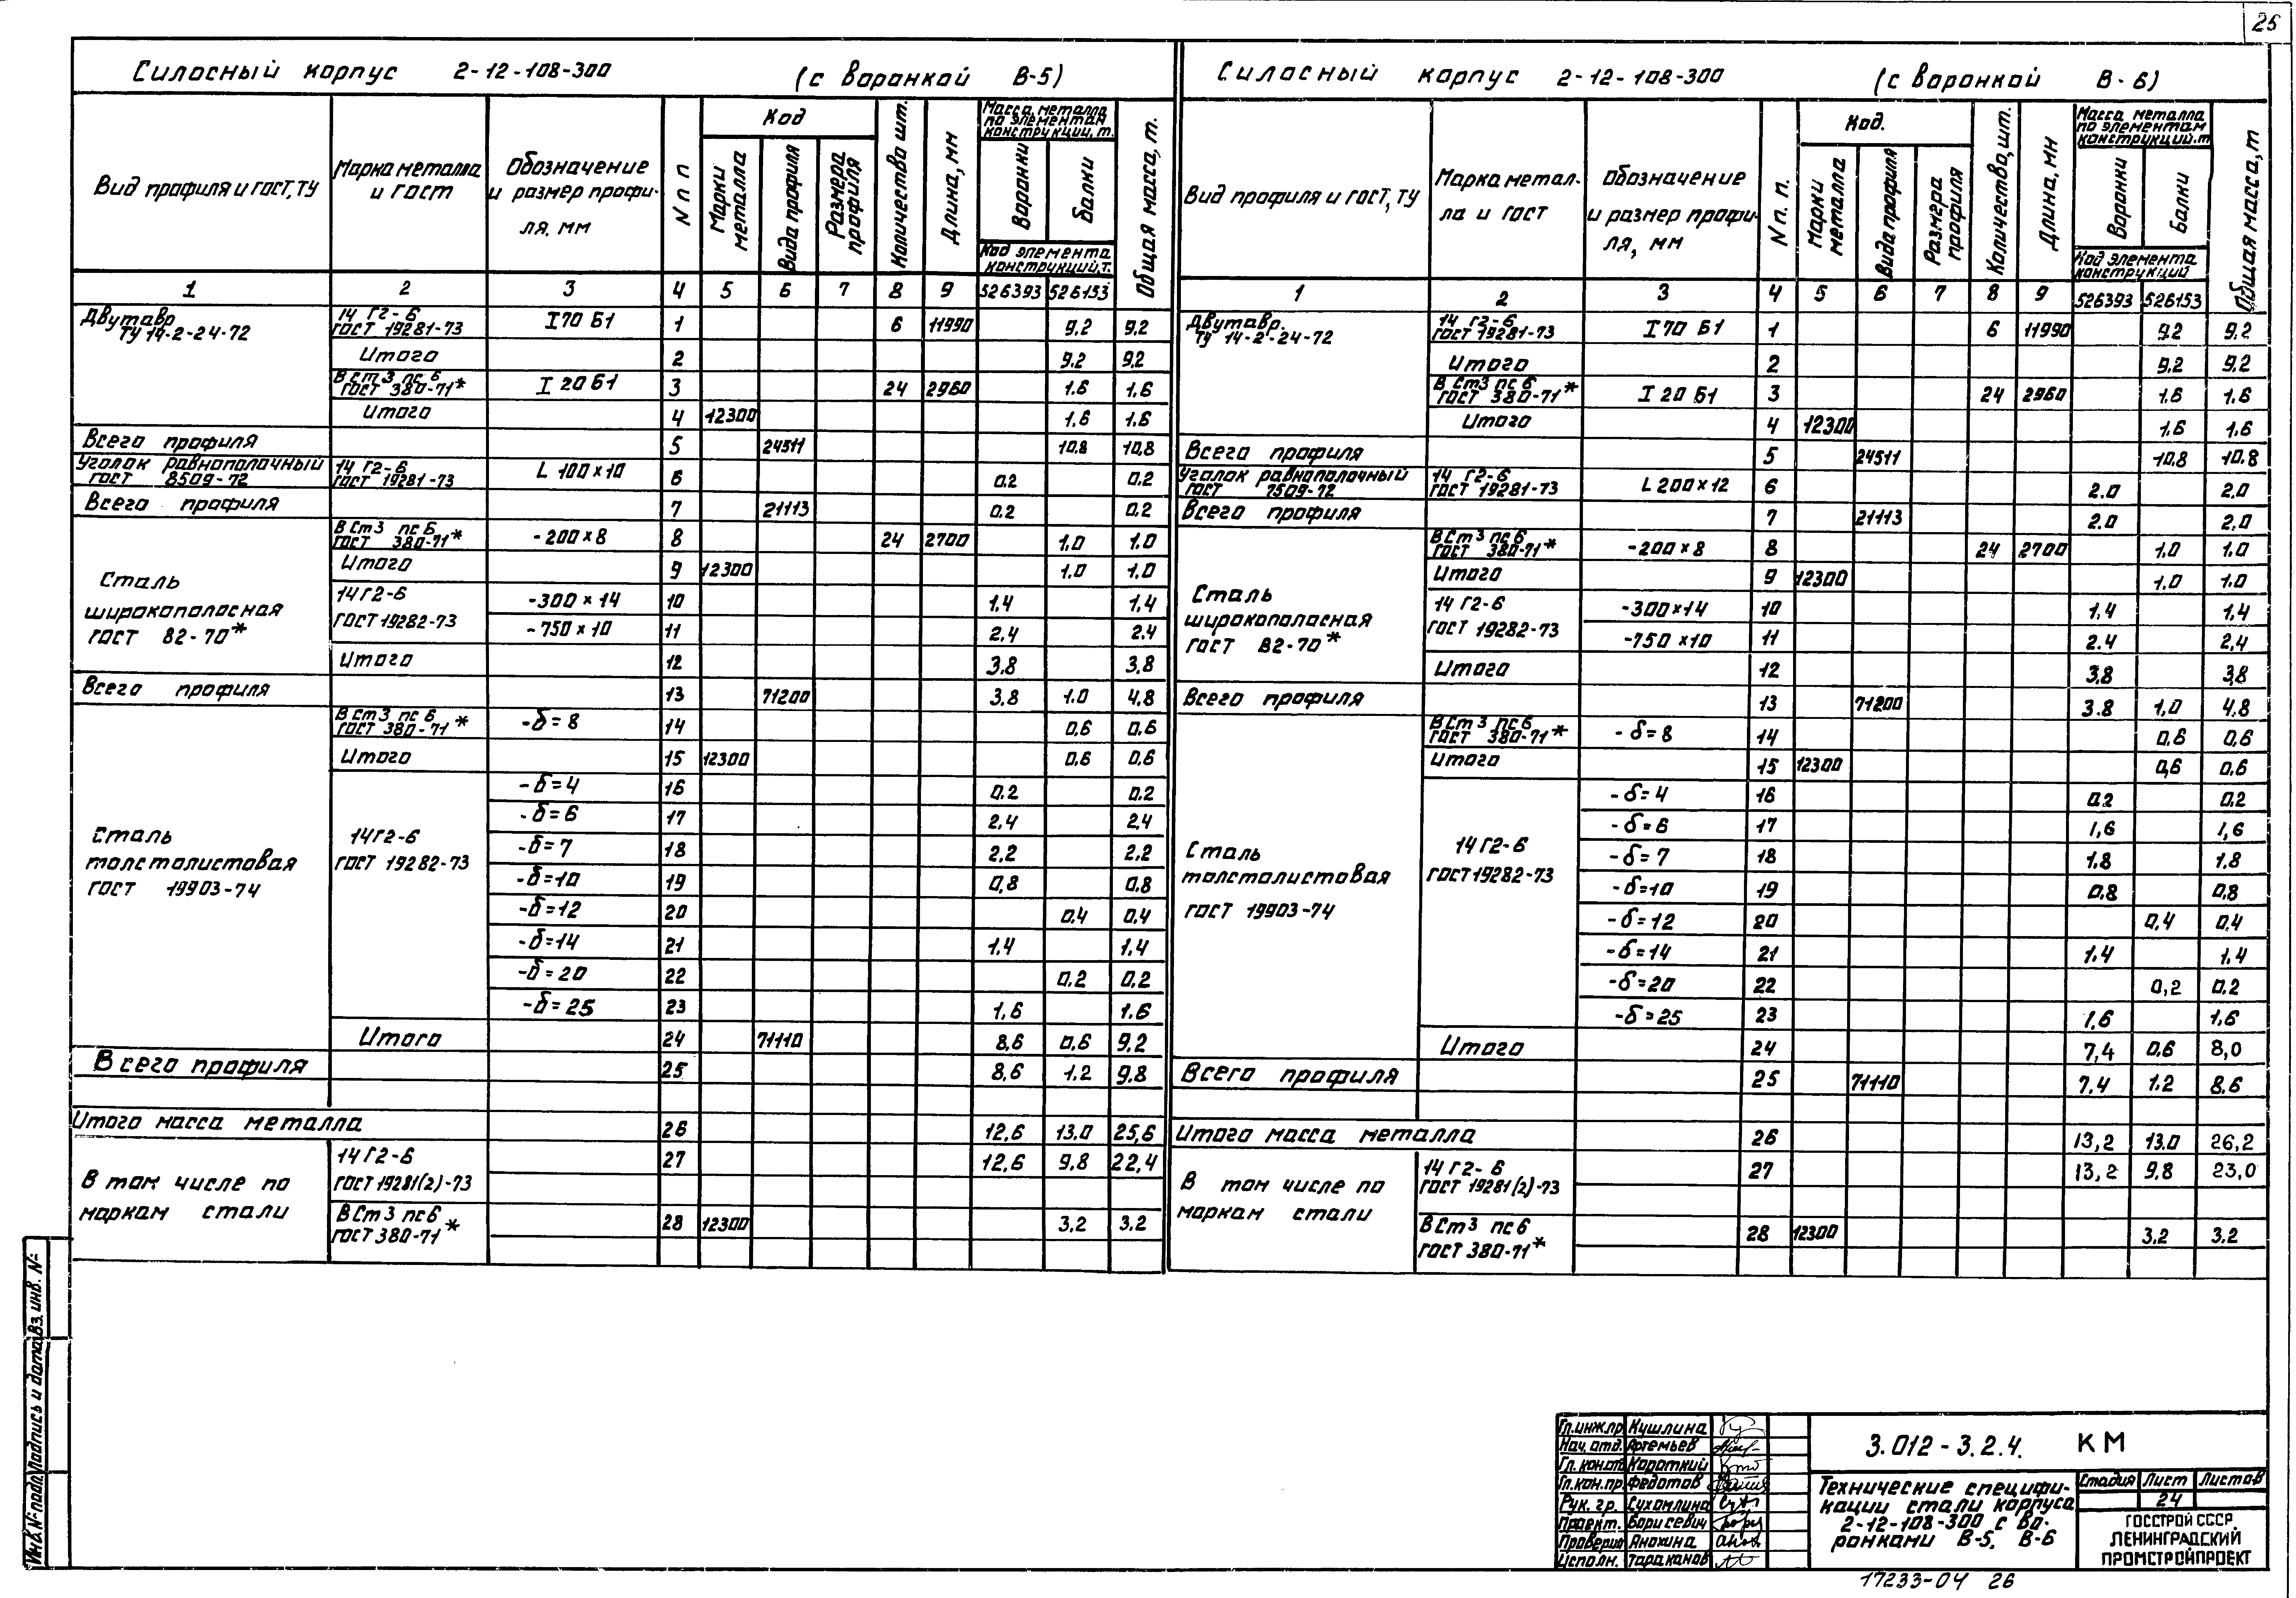 25
Силосный корпус 2-12-108-300 (с воронкой В-5)
Вид профиля и ГОСТ, ТУ
Марка металла и ГОСТ
Обозначение и размер профиля, мм
N п п
Код
Марки металла
Вида профиля
Размера профиля
Количество шт.
Длина, мм
Масса металла по элементам конструкции, т.
Воронки
Балки
Код элемента конструкций, т.
Общая масса, т.
1 2 3 4 5 6 7 8 9 526393 526153
Двутавр ТУ 14-2-24-72 14 Г2-6 ГОСТ 19281-73 I 70 Б1 1 6 11990 9.2 9.2
Итого 2 9.2 9.2
В Ст3 пс 6 ГОСТ 380-71* I 20 Б1 3 24 2960 1.6 1.6
Итого 4 12300 1,6 1,6
Всего профиля 5 24511 10.8 10,8
Уголок равнополочный ГОСТ 8509-72 14 Г2-6 ГОСТ 19281-73 L 100×10 6 0.2 0.2
Всего профиля 7 21113 0.2 0.2
Сталь широкополосная ГОСТ 82-70*
В Ст3 пс 6 ГОСТ 380-71* -200×8 8 24 2700 1.0 1.0
Итого 9 12300 1.0 1.0
14Г2-6 ГОСТ 19282-73 -300×14 10 1.4 1,4
-750×10 11 2.4 2.4
Итого 12 3,8 3,8
Всего профиля 13 71200 3.8 1.0 4,8
Сталь толстолистовая ГОСТ 19903-74
В Ст3 пс 6 ГОСТ 380-71* -δ=8 14 0,6 0,6
Итого 15 12300 0,6 0,6
14Г2-6 ГОСТ 19282-73
-δ=4 16 0.2 0.2
-δ=6 17 2,4 2,4
-δ=7 18 2.2 2.2
-δ=10 19 0,8 0,8
-δ=12 20 0.4 0,4
-δ=14 21 1.4 1,4
-δ=20 22 0.2 0,2
-δ=25 23 1,6 1.6
Итого 24 71110 8,6 0,6 9,2
Всего профиля 25 8,6 1.2 9,8
Итого масса металла 26 12,6 13.0 25,6
В том числе по маркам стали
14Г2-6 ГОСТ 19281(2)-73 27 12,6 9,8 22,4
В Ст3 пс6 ГОСТ 380-71* 28 12300 3,2 3,2
Силосный корпус 2-12-108-300 (с воронкой В-6)
Вид профиля и ГОСТ, ТУ
Марка металла и ГОСТ
Обозначение и размер профиля, мм
N п. п.
Код.
Марки металла
Вида профиля
Размера профиля
Количество, шт.
Длина, мм
Масса металла по элементам конструкций. т
Воронки
Балки
Код элемента конструкций
Общая масса, т
1 2 3 4 5 6 7 8 9 526393 526153
Двутавр. ТУ 14-2-24-72 14 Г2-6 ГОСТ 19281-73 I 70 Б1 1 6 11990 9,2 9,2
Итого 2 9,2 9,2
В Ст3 пс 6 ГОСТ 380-71* I 20 Б1 3 24 2960 1.6 1,6
Итого 4 12300 1,6 1,6
Всего профиля 5 24511 10,8 10,8
Уголок равнополочный ГОСТ 7509-72 14 Г2-6 ГОСТ 19281-73 L 200×12 6 2.0 2,0
Всего профиля 7 21113 2.0 2,0
Сталь широкополосная ГОСТ 82-70*
В Ст3 пс 6 ГОСТ 380-71* -200×8 8 24 2700 1,0 1,0
Итого 9 12300 1,0 1.0
14 Г2-6 ГОСТ 19282-73 -300×14 10 1,4 1,4
-750×10 11 2.4 2,4
Итого 12 3,8 3,8
Всего профиля 13 71200 3.8 1,0 4,8
Сталь толстолистовая ГОСТ 19903-74
В Ст3 пс6 ГОСТ 380-71* -δ=8 14 0,6 0,6
Итого 15 12300 0,6 0,6
14Г2-6 ГОСТ 19282-73
-δ=4 16 0.2 0.2
-δ=6 17 1,6 1,6
-δ=7 18 1.8 1.8
-δ=10 19 0.8 0,8
-δ=12 20 0,4 0,4
-δ=14 21 1.4 1,4
-δ=20 22 0,2 0,2
-δ=25 23 1,6 1,6
Итого 24 7,4 0.6 8,0
Всего профиля 25 71110 7,4 1.2 8.6
Итого масса металла 26 13,2 13.0 26,2
В том числе по маркам стали
14 Г2-6 ГОСТ 19281(2)-73 27 13,2 9,8 23,0
В Ст3 пс6 ГОСТ 380-71* 28 12300 3,2 3,2
Инв. № подл. Подпись и дата Вз. инв. №
Гл. инж.пр Кушлина
Нач. отд. Артемьев
Гл. кон.отд Короткий
Гл. кон. пр. Федотов
Рук. гр. Сухомлина
Проект. Борисевич
Проверил Анохина
Исполн. Тараканов
3.012-3.2.4. КМ
Технические специфи-
кации стали корпуса
2-12-108-300 с во-
ронками В-5, В-6
Стадия Лист Листов
24
ГОССТРОЙ СССР
ЛЕНИНГРАДСКИЙ
ПРОМСТРОЙПРОЕКТ
17233-04 26